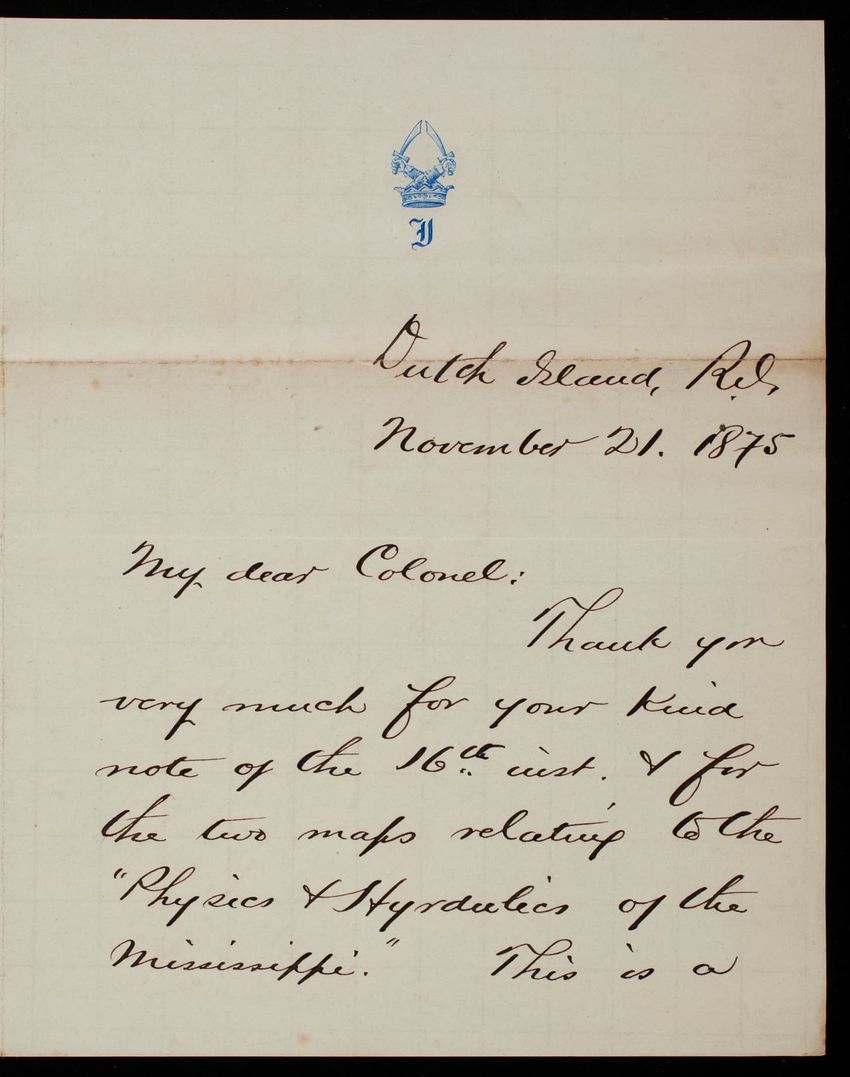 J
Dutch Island, R.I.
November 21. 1875
My dear Colonel:
Thank you
very much for your kind
note of the 16th inst. & for
the two maps relating to the
"Physics & Hyrdulics of the
Mississippi." This is a